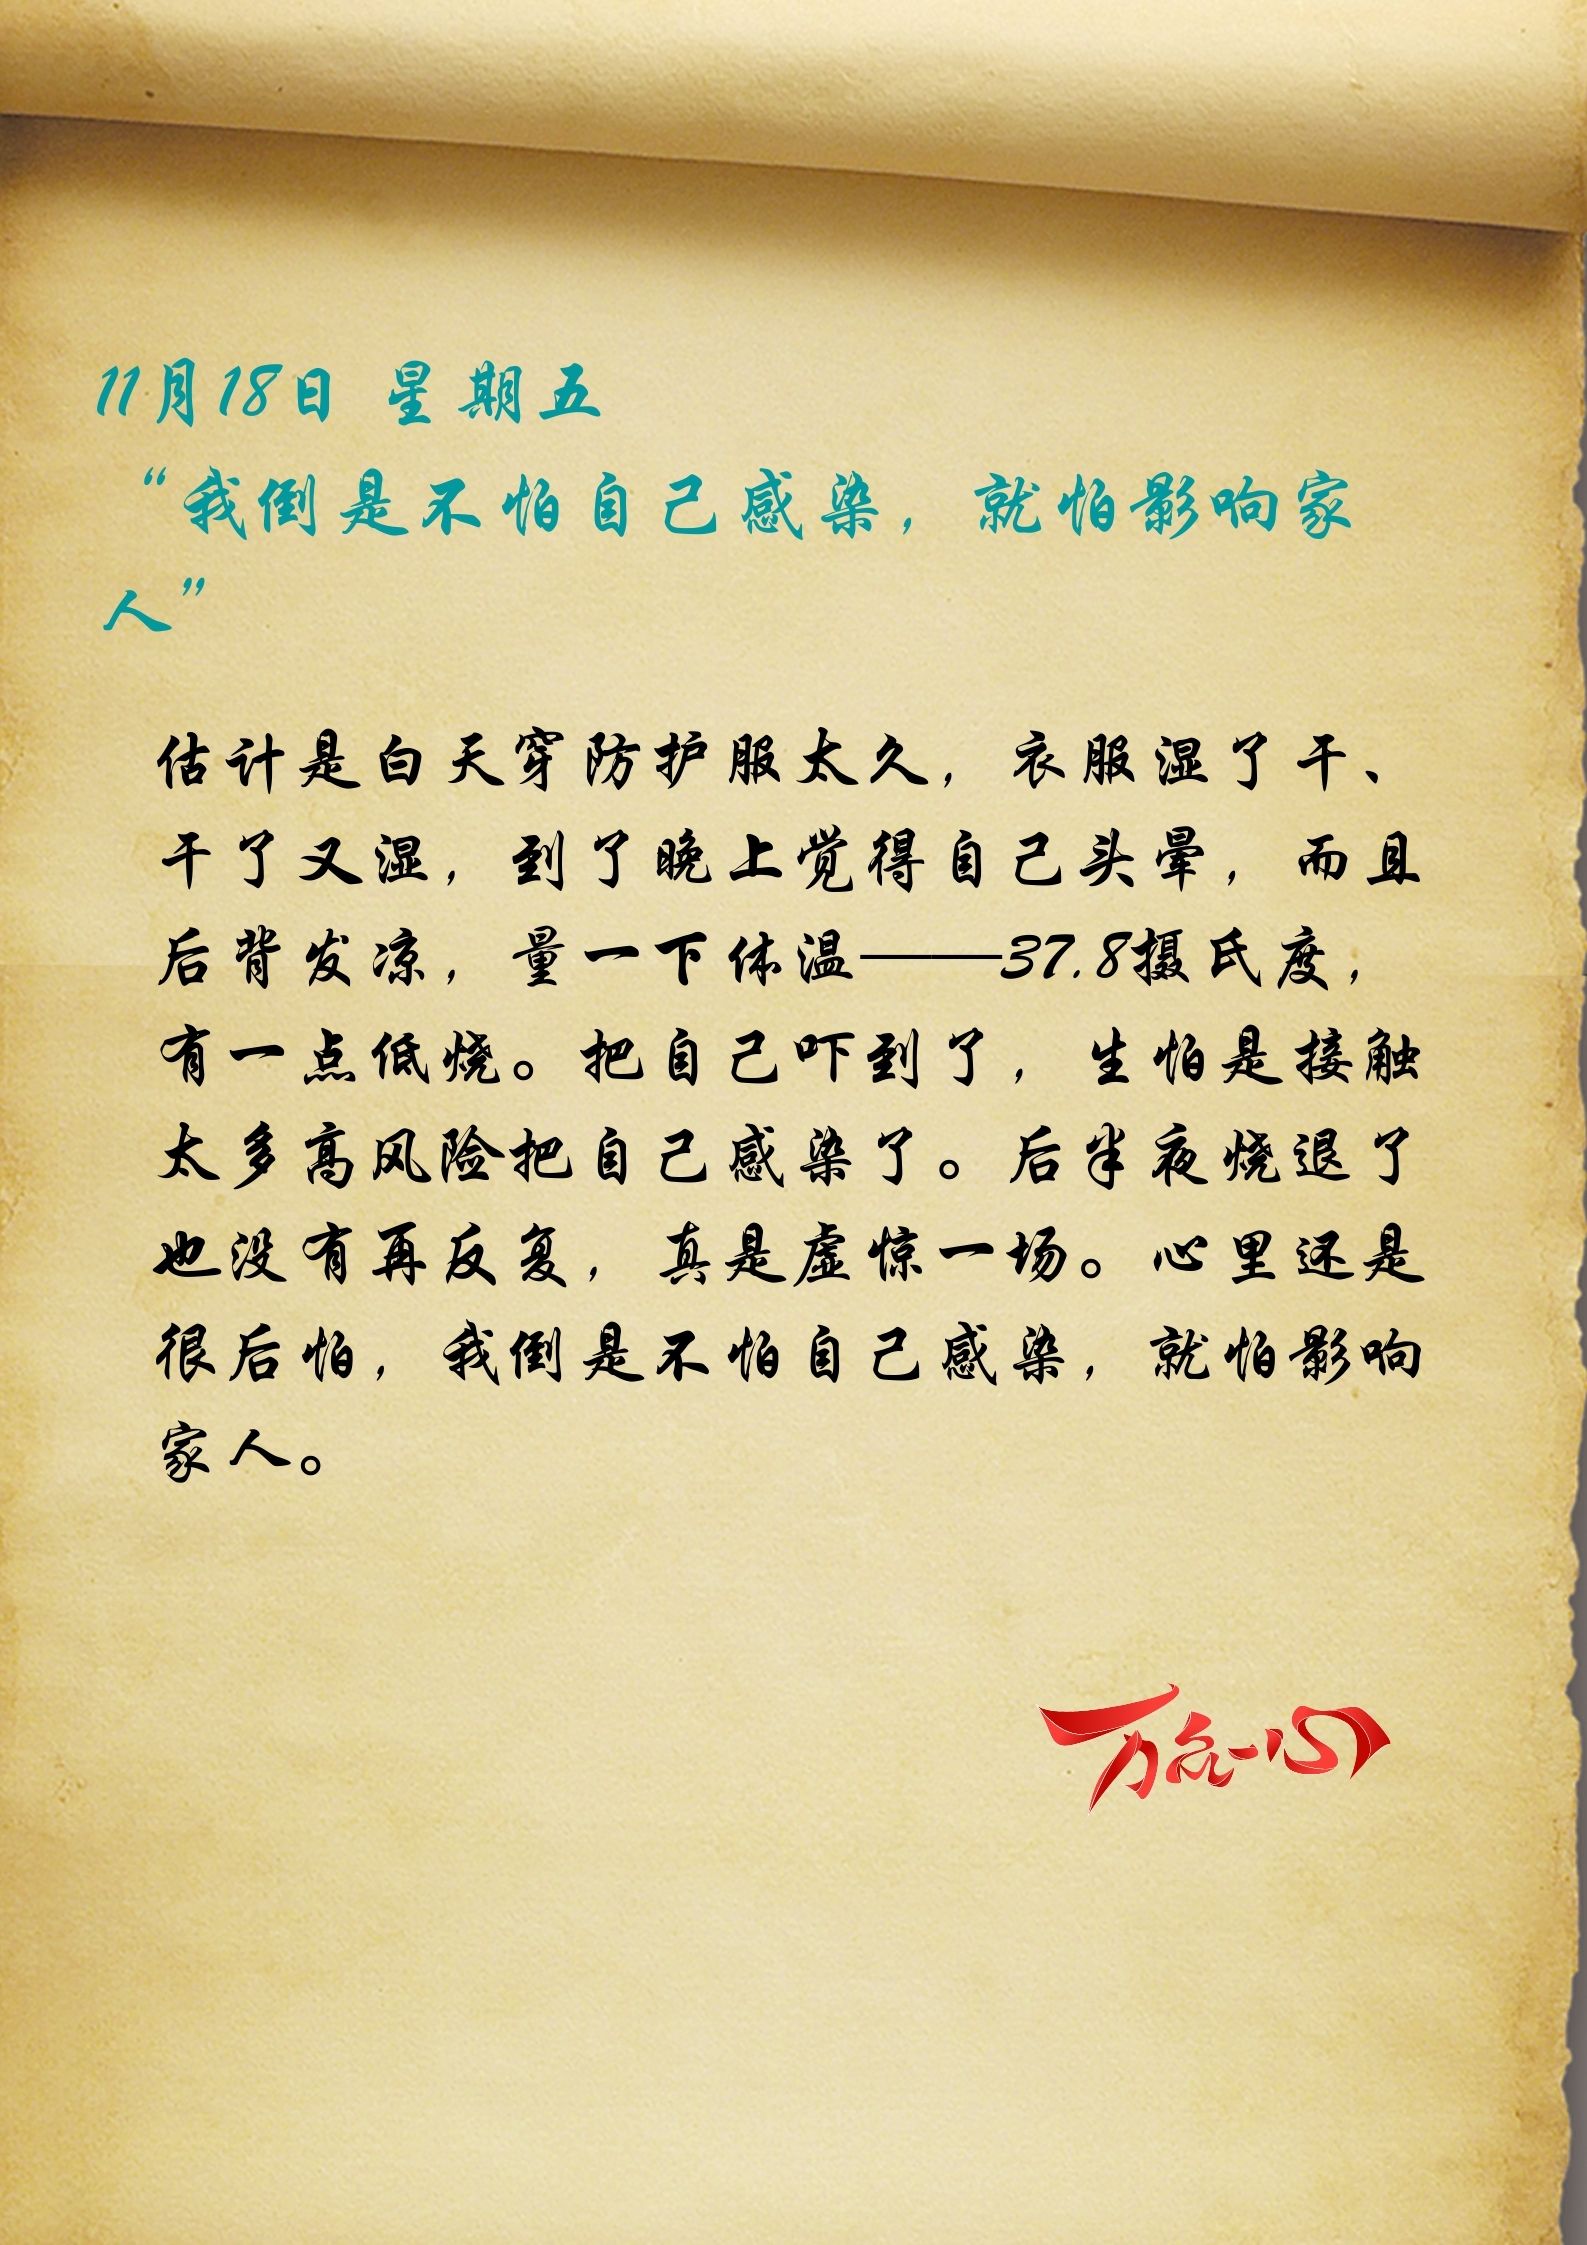 11月18日 星期五
“我倒是不怕自己感染，就怕影响家
人”
估计是白天穿防护服太久，衣服湿了干、
干了又湿，到了晚上觉得自己头晕，而且
后背发凉，量一下体温——37.8摄氏度，
有一点低烧。把自己吓到了，生怕是接触
太多高风险把自己感染了。后半夜烧退了
也没有再反复，真是虚惊一场。心里还是
很后怕，我倒是不怕自己感染，就怕影响
家人。
万众一心